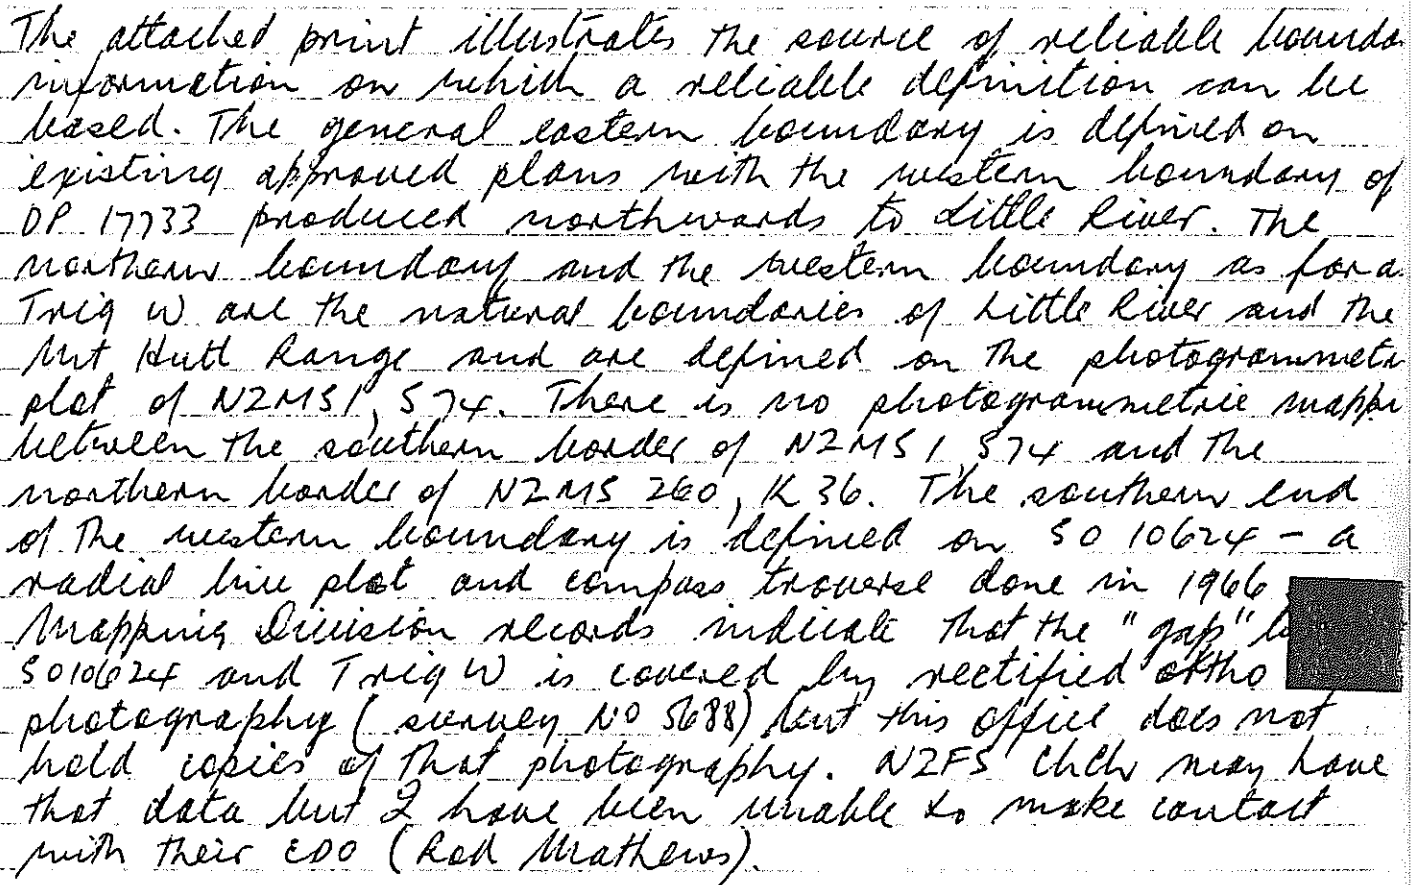 The attached print illustrates the source of reliable bounda
information on which a reliable definition can be
based. The general eastern boundary is defined on
existing approved plans with the western boundary of
DP 17733 produced northwards to Little River. The
northern boundary and the western boundary as far a
Trig W are the natural boundaries of Little River and the
Mt Hutt Range and are defined on the photogrammetr
plot of NZMS1, S74. There is no photogrammetric mappi
between the southern border of NZMS1, S74 and the
northern border of NZMS 260, K36. The southern end
of the western boundary is defined on SO 10624 - a
radial line plot and compass traverse done in 1966
Mapping Division records indicate that the "gap" b
SO10624 and Trig W is covered by rectified ortho
photography (survey No 5688) but this office does not
hold copies of that photography. NZFS ChCh may have
that data but I have been unable to make contact
with their CDO (Rod Mathews).